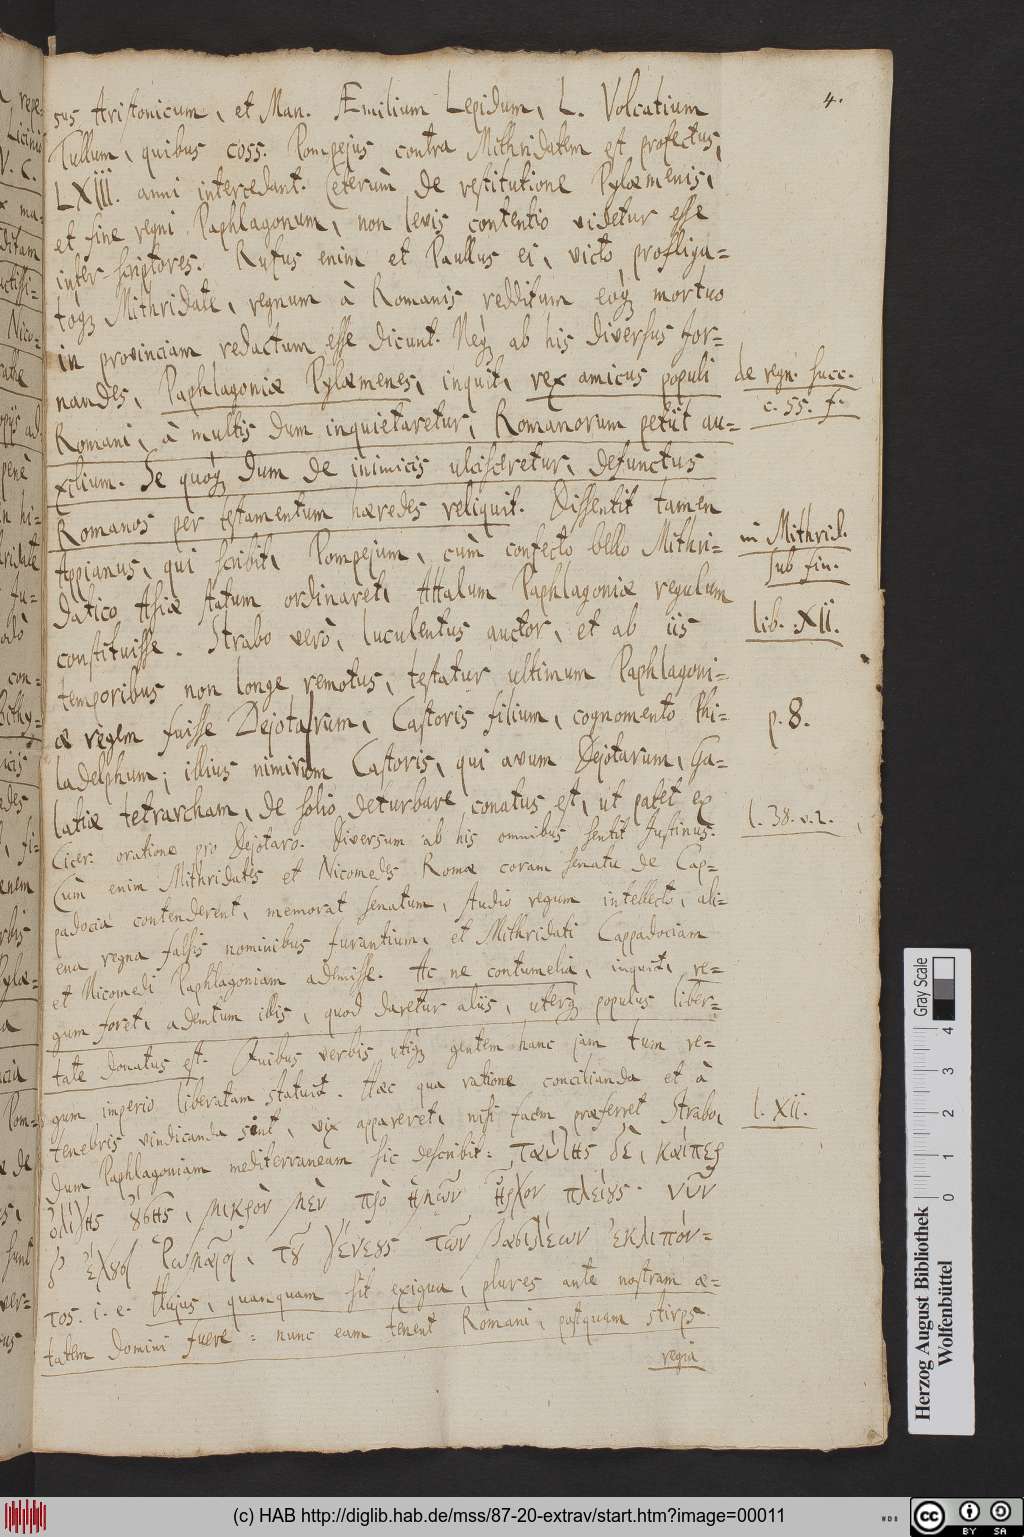 4.
sus Aristonicum, et Man. Æmilium Lepidum, L. Volcatium
Tullum, quibus coss. Pompejus contra Mithridatem est profectus,
LXIII. anni intercedant. Ceterùm de restitutione Pylæmenis,
et fine regni Paphlagonum, non levis contentio videtur esse
inter scriptores. Rufus enim et Paullus ei, victo, profliga=
toqz Mithridate, regnum à Romanis redditum eoqz mortuo
in provinciam redactum esse dicunt. Neqz ab his diversus Jor=
nandes, Paphlagoniæ Pylæmenes, inquit, rex amicus populi
de regn. succ.
c. 55. f.
Romani, à multis dum inquietaretur, Romanorum petiit au=
xilium. Se quoqz dum de inimicis ulcisceretur, defunctus
Romanos per testamentum hæredes reliquit. Dissentit tamen
Appianus, qui scribit, Pompejum, cùm confecto bello Mithri=
in Mithrid.
sub fin.
datico Asiæ statum ordinaret, Attalum Paphlagoniæ regulum
constituisse. Strabo verò, luculentus auctor, et ab iis
lib. XII.
temporibus non longe remotus, testatur ultimum Paphlagoni=
æ regem fuisse Dejotarum, Castoris filium, cognomento Phi=
p. 8.
ladelphum; illius nimirum Castoris, qui avum Dejotarum, Ga=
latiæ tetrarcham, de solio deturbare conatus est, ut patet ex
Cicer. oratione pro Dejotaro. Diversum ab his omnibus sentit Justinus.
l. 38. v. 2.
Cùm enim Mithridates et Nicomedes Romæ coram senatu de Cap=
padocia contenderent, memorat senatum, studio regum intellecto, ali=
ena regna falsis nominibus furantium, et Mithridati Cappadociam
et Nicomedi Paphlagoniam ademisse. Ac ne contumelia, inquit, re=
gum foret, ademtum illis, quod daretur aliis, uterqz populus liber=
tate donatus est. Quibus verbis utiqz gentem hanc jam tum re=
gum imperio liberatam statuit. Hæc qua ratione concilianda et à
tenebris vindicanda sint, vix appareret, nisi facem præferret Strabo,
l. XII.
dum Paphlagoniam mediterraneam sic describit: ταύτης δὲ, καίπερ
ὀλίγης οὔσης, μικρὸν μὲν πρὸ ἡμῶν ἦρχον πλείους. νῦν
δ' ἔχουσι Ῥωμαῖοι, τοῦ γένους τῶν βασιλέων ἐκλιπόν=
τος. i. e. Hujus, quanquam sit exigua, plures ante nostram æ=
tatem domini fuere: nunc eam tenent Romani, postquam stirps
regia
Gray Scale
4
3
2
1
0
Herzog August Bibliothek
Wolfenbüttel
(c) HAB http://diglib.hab.de/mss/87-20-extrav/start.htm?image=00011
cc BY SA